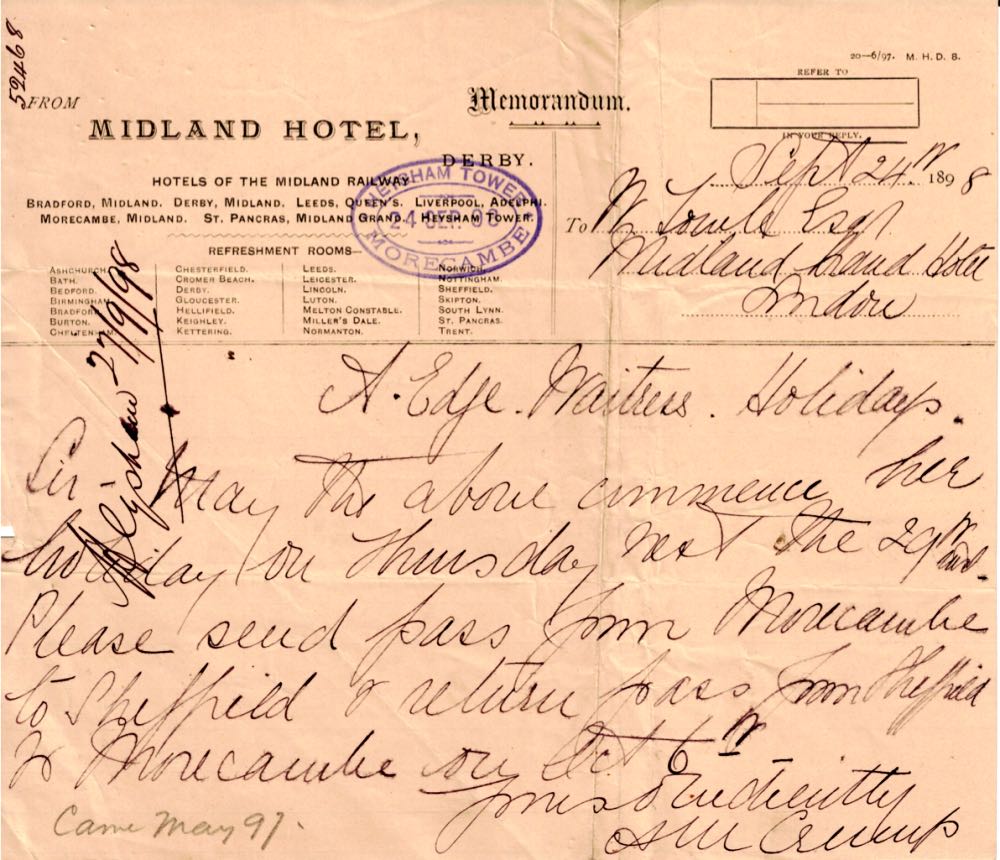 52468
20—6/97. M. H. D. B.
FROM
Memorandum.
REFER TO
IN YOUR REPLY.
MIDLAND HOTEL,
DERBY.
Sept 24th 1898
HOTELS OF THE MIDLAND RAILWAY
BRADFORD, MIDLAND. DERBY, MIDLAND. LEEDS, QUEEN'S. LIVERPOOL, ADELPHI.
MORECAMBE, MIDLAND. ST. PANCRAS, MIDLAND GRAND. HEYSHAM TOWER.
HEYSHAM TOWER
24 SEP. 98
MORECAMBE
To W Towle Esqr
Midland Grand Hotel
London
REFRESHMENT ROOMS—
ASHCHURCH. CHESTERFIELD. LEEDS. NORWICH.
BATH. CROMER BEACH. LEICESTER. NOTTINGHAM.
BEDFORD. DERBY. LINCOLN. SHEFFIELD.
BIRMINGHAM. GLOUCESTER. LUTON. SKIPTON.
BRADFORD. HELLIFIELD. MELTON CONSTABLE. SOUTH LYNN.
BURTON. KEIGHLEY. MILLER'S DALE. ST. PANCRAS.
CHELTENHAM. KETTERING. NORMANTON. TRENT.
27/9/98
A. Edge. Waitress. Holidays.
Sir - May the above commence her
holiday on Thursday next the 29th inst.
Please send pass from Morecambe
to Sheffield & return pass from Sheffield
to Morecambe on Oct 6th
Yours Obediently
Came May 97.